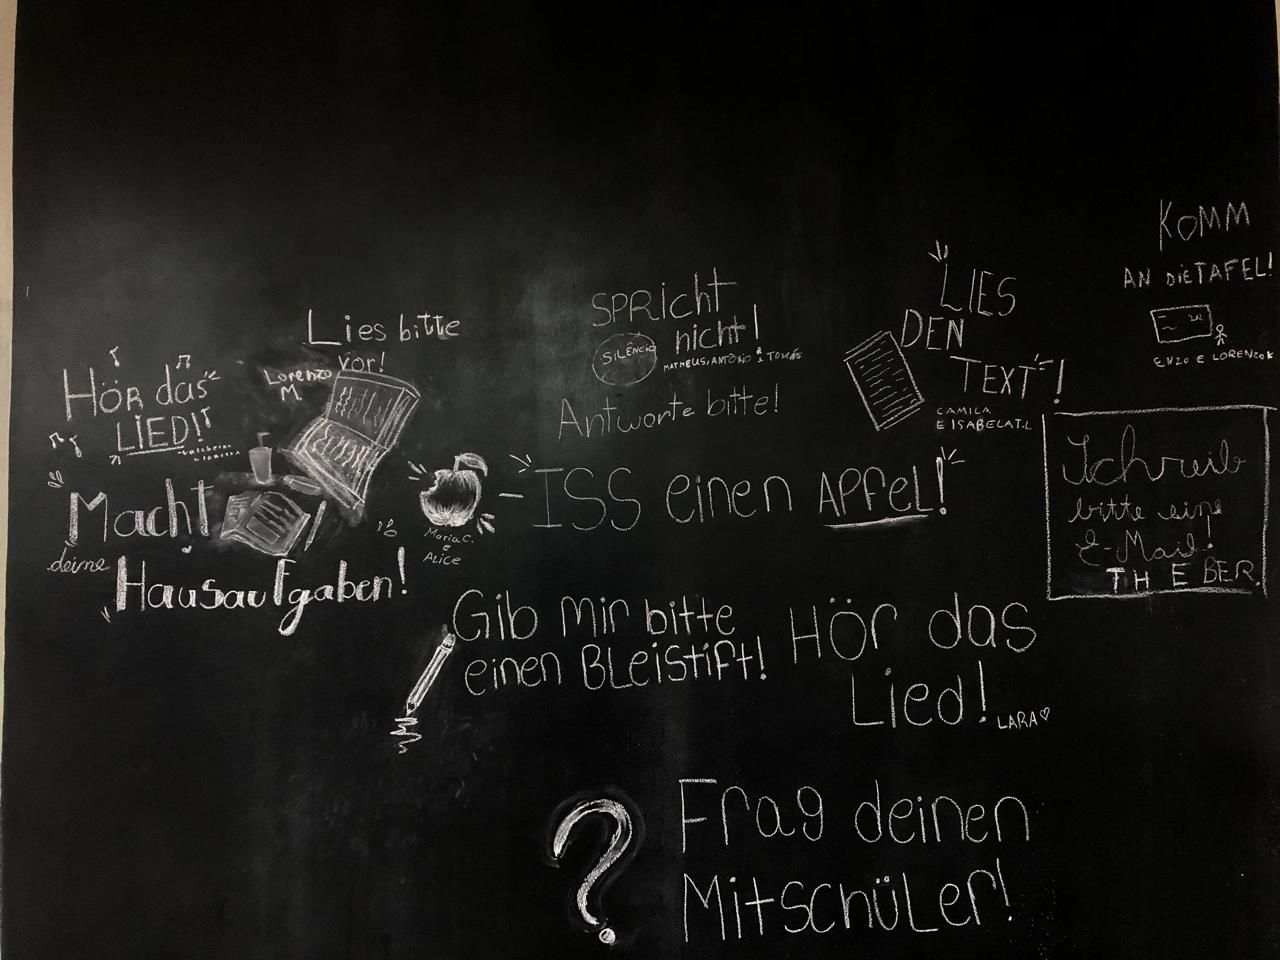 KOMM
AN DIE TAFEL!
ENZO E LORENZO K
LIES
DEN
TEXT!
CAMILA
E ISABELA T.L
SPRicht
nicht!
SILÊNCIO
MATHEUS, ANTÔNIO & TOMÁS
Antworte bitte!
Lies bitte
vor!
Lorenzo
M.
HÖR das
LIED!
Macht
deine
Hausaufgaben!
Maria C.
e
ALICE
ISS einen APfel!
Schreib
bitte eine
E-Mail!
THEBER.
Gib mir bitte
einen BLeistift!
HÖr das
Lied!
LARA♡
Frag deinen
MitschüLer!